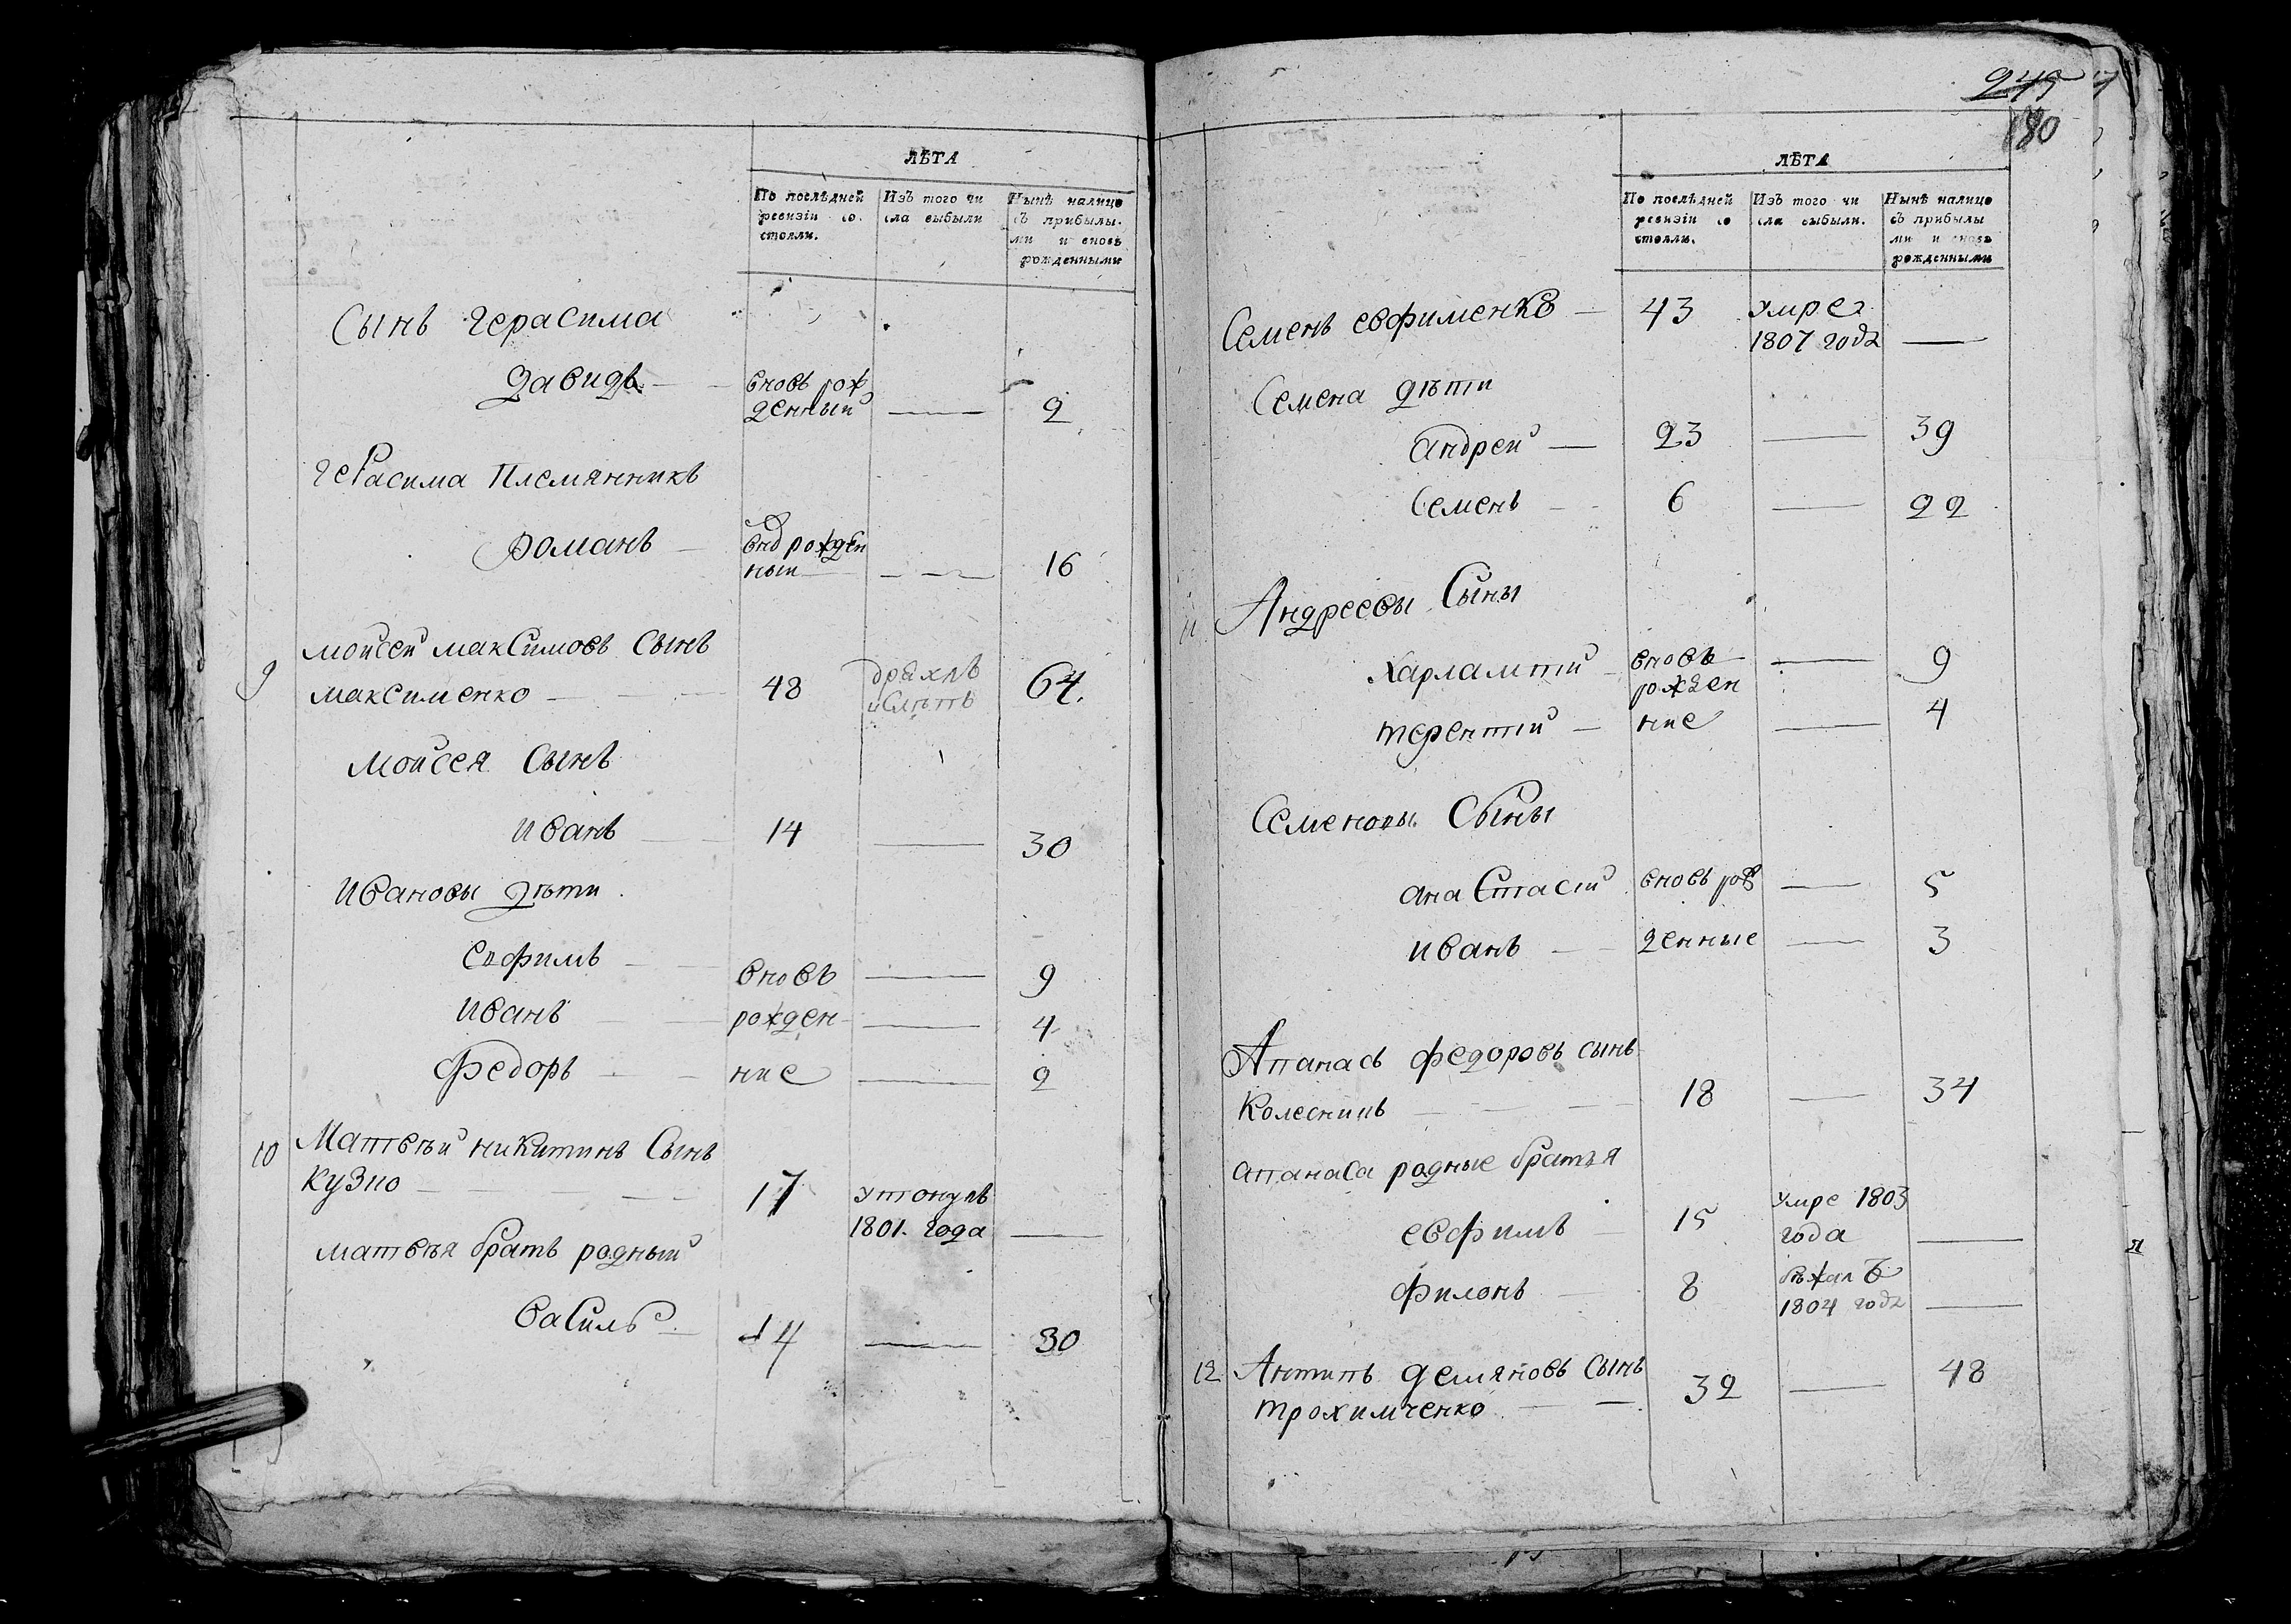 ЛѢТА
По послѣдней ревизіи со стояли.
Изъ того чи сла выбыли
Нынѣ налицо съ прибылы. ми и вновь рожденными
Сынъ герасима
Давидъ — вновь рож денный — 2
герасима Племянникъ
романъ — вно рожден ный — 16
9 мойсей максимовъ Сынъ
максименко — 48 дряхлъ и слѣпъ 64.
Мойсея Сынъ
иванъ — 14 — 30
Ивановы дѣти
евфимъ — вновь — 9
иванъ — рожден — 4
федоръ — ние — 2
10 Матвѣй никитинъ Сынъ
кузно — 17 утонулъ
1801. года —
матвѣя братъ родный
василь — 14 — 30
245
180
ЛѢТА
По послѣдней ревизіи со стояли.
Изъ того чи сла выбыли.
Нынѣ налицо съ прибылы ми и вновь рожденными
Семенъ евфименко — 43 умре
1807 года —
Семена дѣти
андрей — 23 — 39
Семенъ — 6 — 22
11 Андреевы Сыны
харлампий — вновь — 9
рожден
терентий — ние — 4
Семеновы Сыны
анастасий вновь рож — 5
иванъ — денные — 3
Апанасъ федоровъ сынъ
колесникъ — 18 — 34
апанаса родные братья
евфимъ — 15 умре 1803
года —
филонъ — 8 бѣжалъ
1804 года —
12 Антипъ демяновъ сынъ 48
трохимченко — 32 —